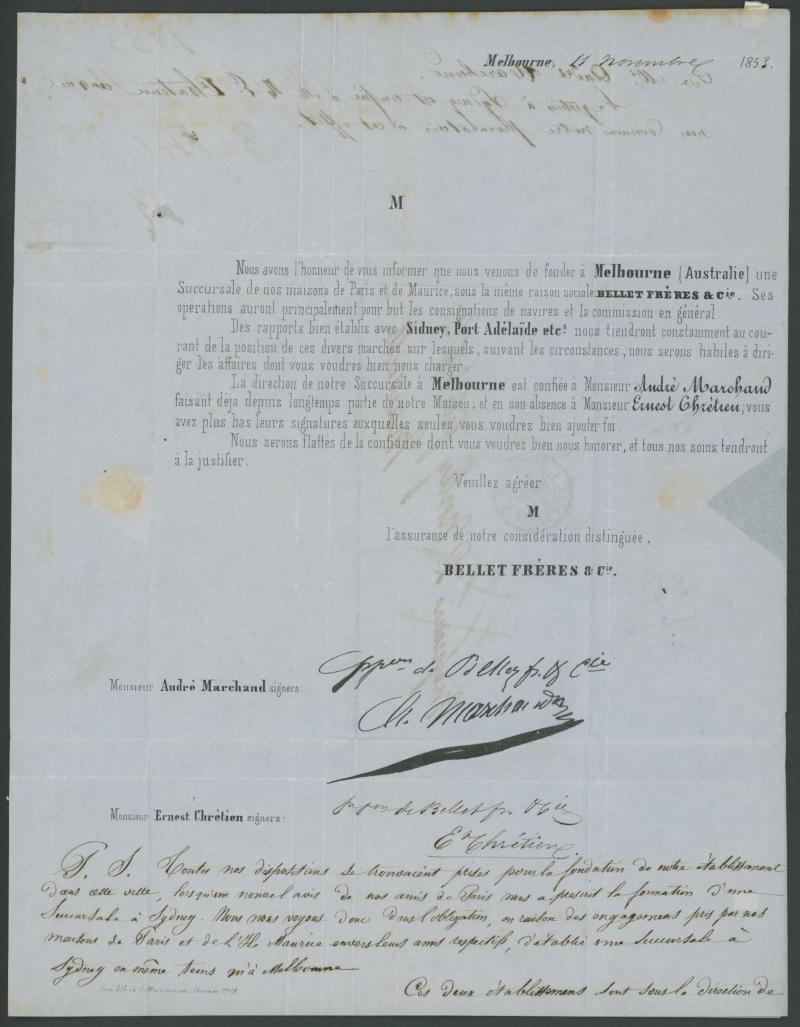 Melbourne, 11 novembre 1853.
M
Nous avons l'honneur de vous informer que nous venons de fonder à Melbourne (Australie) une
Succursale de nos maisons de Paris et de Maurice, sous la même raison sociale BELLET FRÈRES & Cie. Ses
opérations auront principalement pour but les consignations de navires et la commission en général.
Des rapports bien établis avec Sidney, Port Adélaïde etc.ª nous tiendront constamment au cou-
rant de la position de ces divers marchés sur lesquels, suivant les circonstances, nous serons habiles à diri-
ger les affaires dont vous voudrez bien nous charger.
La direction de notre Succursale à Melbourne est confiée à Monsieur André Marchand
faisant déja depuis longtemps partie de notre Maison; et en son absence à Monsieur Ernest Chrétien; vous
avez plus bas leurs signatures auxquelles seules vous voudrez bien ajouter foi.
Nous serons flattés de la confiance dont vous voudrez bien nous honorer, et tous nos soins tendront
à la justifier.
Veuillez agréer
M
l'assurance de notre considération distinguée,
BELLET FRÈRES & Cie.
de Bellet fr. & Cie
Monsieur André Marchand signera:
A. Marchand
de Bellet fr. & Cie
Monsieur Ernest Chrétien signera:
E. Chrétien
P. S. Toutes nos dispositions se trouvaient prises pour la fondation de notre établissement
dans cette ville, lorsqu'un nouvel avis de nos amis de Paris nous a prescrit la formation d'une
Succursale à Sydney. Nous nous voyons donc dans l'obligation, en raison des engagemens pris par nos
maisons de Paris et de l'Ile Maurice envers leurs amis respectifs, d'établir une Succursale à
Sydney en même tems qu'à Melbourne
Ces deux établissemens sont sous la direction de